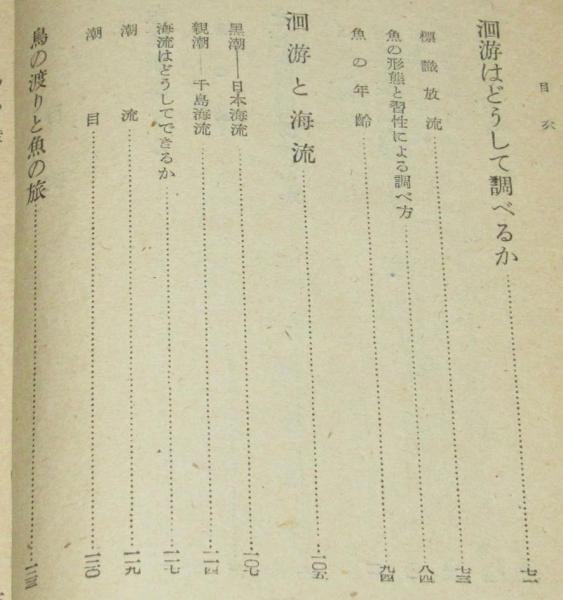 目次
洄游はどうして調べるか……七一
標識放流……七三
魚の形態と習性による調べ方……八四
魚の年齢……九四
洄游と海流……一〇五
黒潮—日本海流……一〇七
親潮—千島海流……一一四
海流はどうしてできるか……一一七
潮流……一一九
潮目……一二〇
鳥の渡りと魚の旅